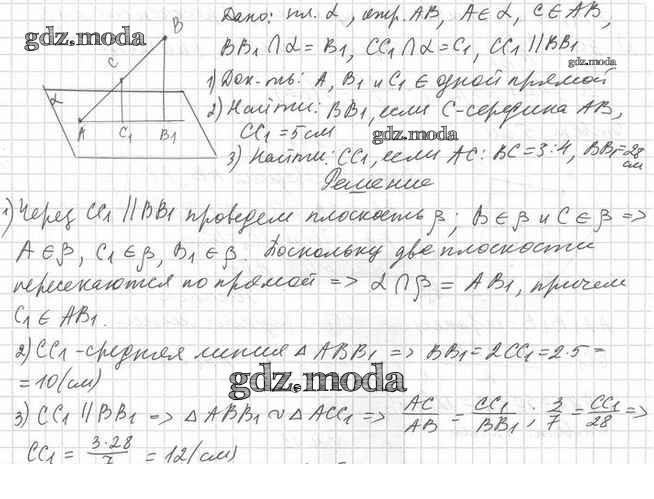 Дано: пл. α, отр. AB, A∈α, C∈AB,
BB₁∩α=B₁, CC₁∩α=C₁, CC₁∥BB₁
gdz.moda
gdz.moda
1) Док-ть: A, B₁ и C₁ ∈ одной прямой
2) Найти: BB₁, если C-середина AB,
CC₁=5см
gdz.moda
3) Найти: CC₁, если AC:BC=3:4, BB₁=28
см
B
C
α
A C₁ B₁
Решение
1) Через CC₁∥BB₁ проведем плоскость β; B∈β и C∈β =>
A∈β, C₁∈β, B₁∈β. Поскольку две плоскости
пересекаются по прямой => α∩β = AB₁, причем
C₁∈AB₁.
2) CC₁-средняя линия △ABB₁ => BB₁=2CC₁=2·5=
=10(см)
gdz.moda
3) CC₁∥BB₁ => △ABB₁ ~ △ACC₁ => AC/AB = CC₁/BB₁; 3/7 = CC₁/28 =>
CC₁ = 3·28/7 = 12(см)